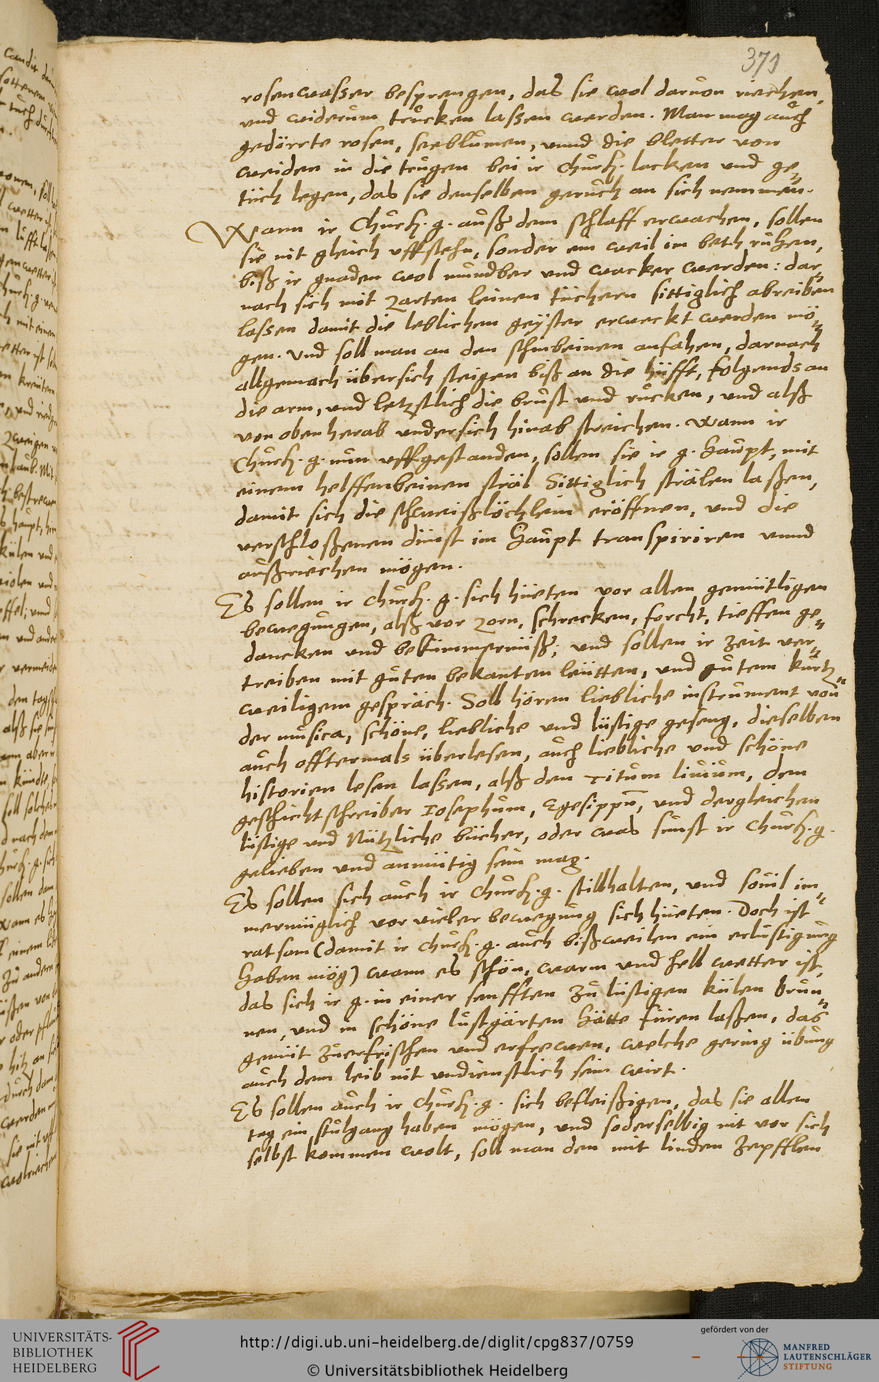 371
rosenwasser besprengen, das sie wol daruon riechen,
vnd widerum trucken lassen werden. Man mag auch
gedörrte rosen, seeblumen, vnnd die bletter von
weiden in die trugen bei ir churf. lacken vnd ge„
tüch legen, das sie denselben geruch an sich nemmen.
Wann ir Churf. g. auß dem schlaff erwachen, sollen
sie nit gleich vffstehn, sonder ein weil im beth ruhen,
biß ir gnaden wol mundber vnd wacker werden: dar„
nach sich mit zarten leinen tüchern sittiglich abreiben
lassen damit die leblichen geyster erweckt werden mö„
gen. Vnd soll man an den schinbeinen anfahen, darnach
allgemach übersich steigen biß an die hüfft, folgends an
die arm, vnd letzstlich die brust vnd rucken, vnd alß
von oben herab vndersich hinab streichen. Wann ir
Churf. g. nun vffgestanden, sollen sie ir g. Haupt, mit
einem helffenbeinen sträl Sittiglich strälen laßen,
damit sich die schweißlöchlein eröffnen, vnd die
verschloßenen dünst im Haupt transpiriren vnnd
außriechen mögen.
Es sollen ir churf. g. sich hüeten vor allen gemütligen
bewegungen, alß vor zorn, schrecken, forcht, tieffen ge„
dancken vnd bekimmernuß; vnd sollen ir zeit ver„
treiben mit guten bekanten leütten, vnd gutem kurtz„
weiligem gespräch. Soll hören liebliche instrument von
der musica, schöne, liebliche vnd lustige geseng, dieselben
auch offtermals überlesen, auch liebliche vnd schöne
historien lesen lassen, alß den Titum liuium, den
geschichtschreiber Iosephum, Egesippū, vnd dergleichen
lustige vnd Nützliche bücher, oder was sunst ir churf. g.
gelieben vnd anmütig sein mag.
Es sollen sich auch ir churf. g. stillhalten, vnd souil im„
mermüglich vor vieler bewegung sich hüeten. Doch ist
ratsam (damit ir churf. g. auch bißweilen ein erlustigung
Haben mög) wann es schön, warm vnd hell wetter ist,
das sich ir g. in einer senfften zu lüstigen külen brun„
nen, vnd in schöne lustgärten Hätte füren laßen, das
gemüt zuerfrischen vnd erfrewen, welche gering übung
auch dem leib nit vndienstlich sein wirt.
Es sollen auch ir churf. g. sich befleißigen, das sie allen
tag ein stulgang haben mögen, vnd so derselbig nit vor sich
selbst kommen wolt, soll man den mit linden Zepfflen
UNIVERSITÄTS-
BIBLIOTHEK
HEIDELBERG
http://digi.ub.uni-heidelberg.de/diglit/cpg837/0759
© Universitätsbibliothek Heidelberg
gefördert von der
MANFRED
LAUTENSCHLÄGER
STIFTUNG